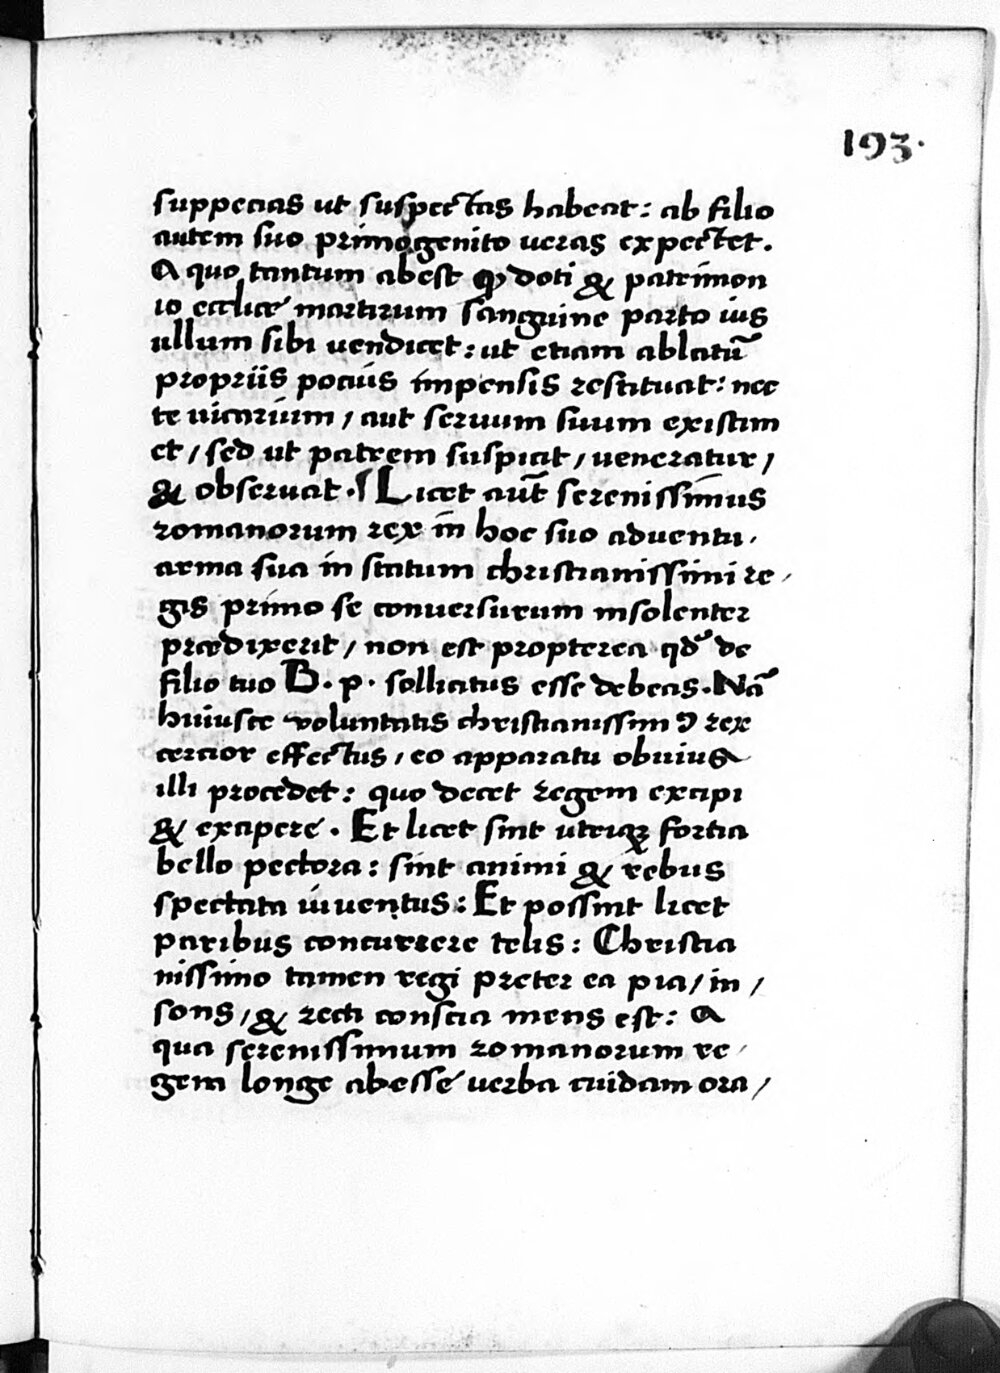 193.
suppecias ut suspectas habeat: ab filio
autem suo primogenito ueras expectet.
A quo tantum abest ꝙ doti & patrimon
io ecclīce martirum sanguine parto ius
ullum sibi uendicet: ut etiam ablatū
propriis pocius impensis restituat: nec
te uicarium / aut seruum suum existim
et / sed ut patrem suspiciat / ueneratur /
& obseruat. Licet aūt serenissimus
romanorum rex in hoc suo aduentu,
arma sua in statum christianissimi re /
gis primo se conuersurum insolenter
prædixerit / non est propterea qd de
filio tuo B. p. sollicitus esse debeas. Nā
huiusce voluntatis christianissimꝰ rex
cercior effectus, eo apparatu obuius
illi procedet: quo decet regem excipi
& excipere. Et licet sint utriqꝫ fortia
bello pectora: sint animi & rebus
spectata iuuentus: Et possint licet
paribus concurrere telis: Christia
nissimo tamen regi preter ea pia / in /
sons / & recti conscia mens est: A
qua serenissimum romanorum re /
gem longe abesse uerba cuidam ora /